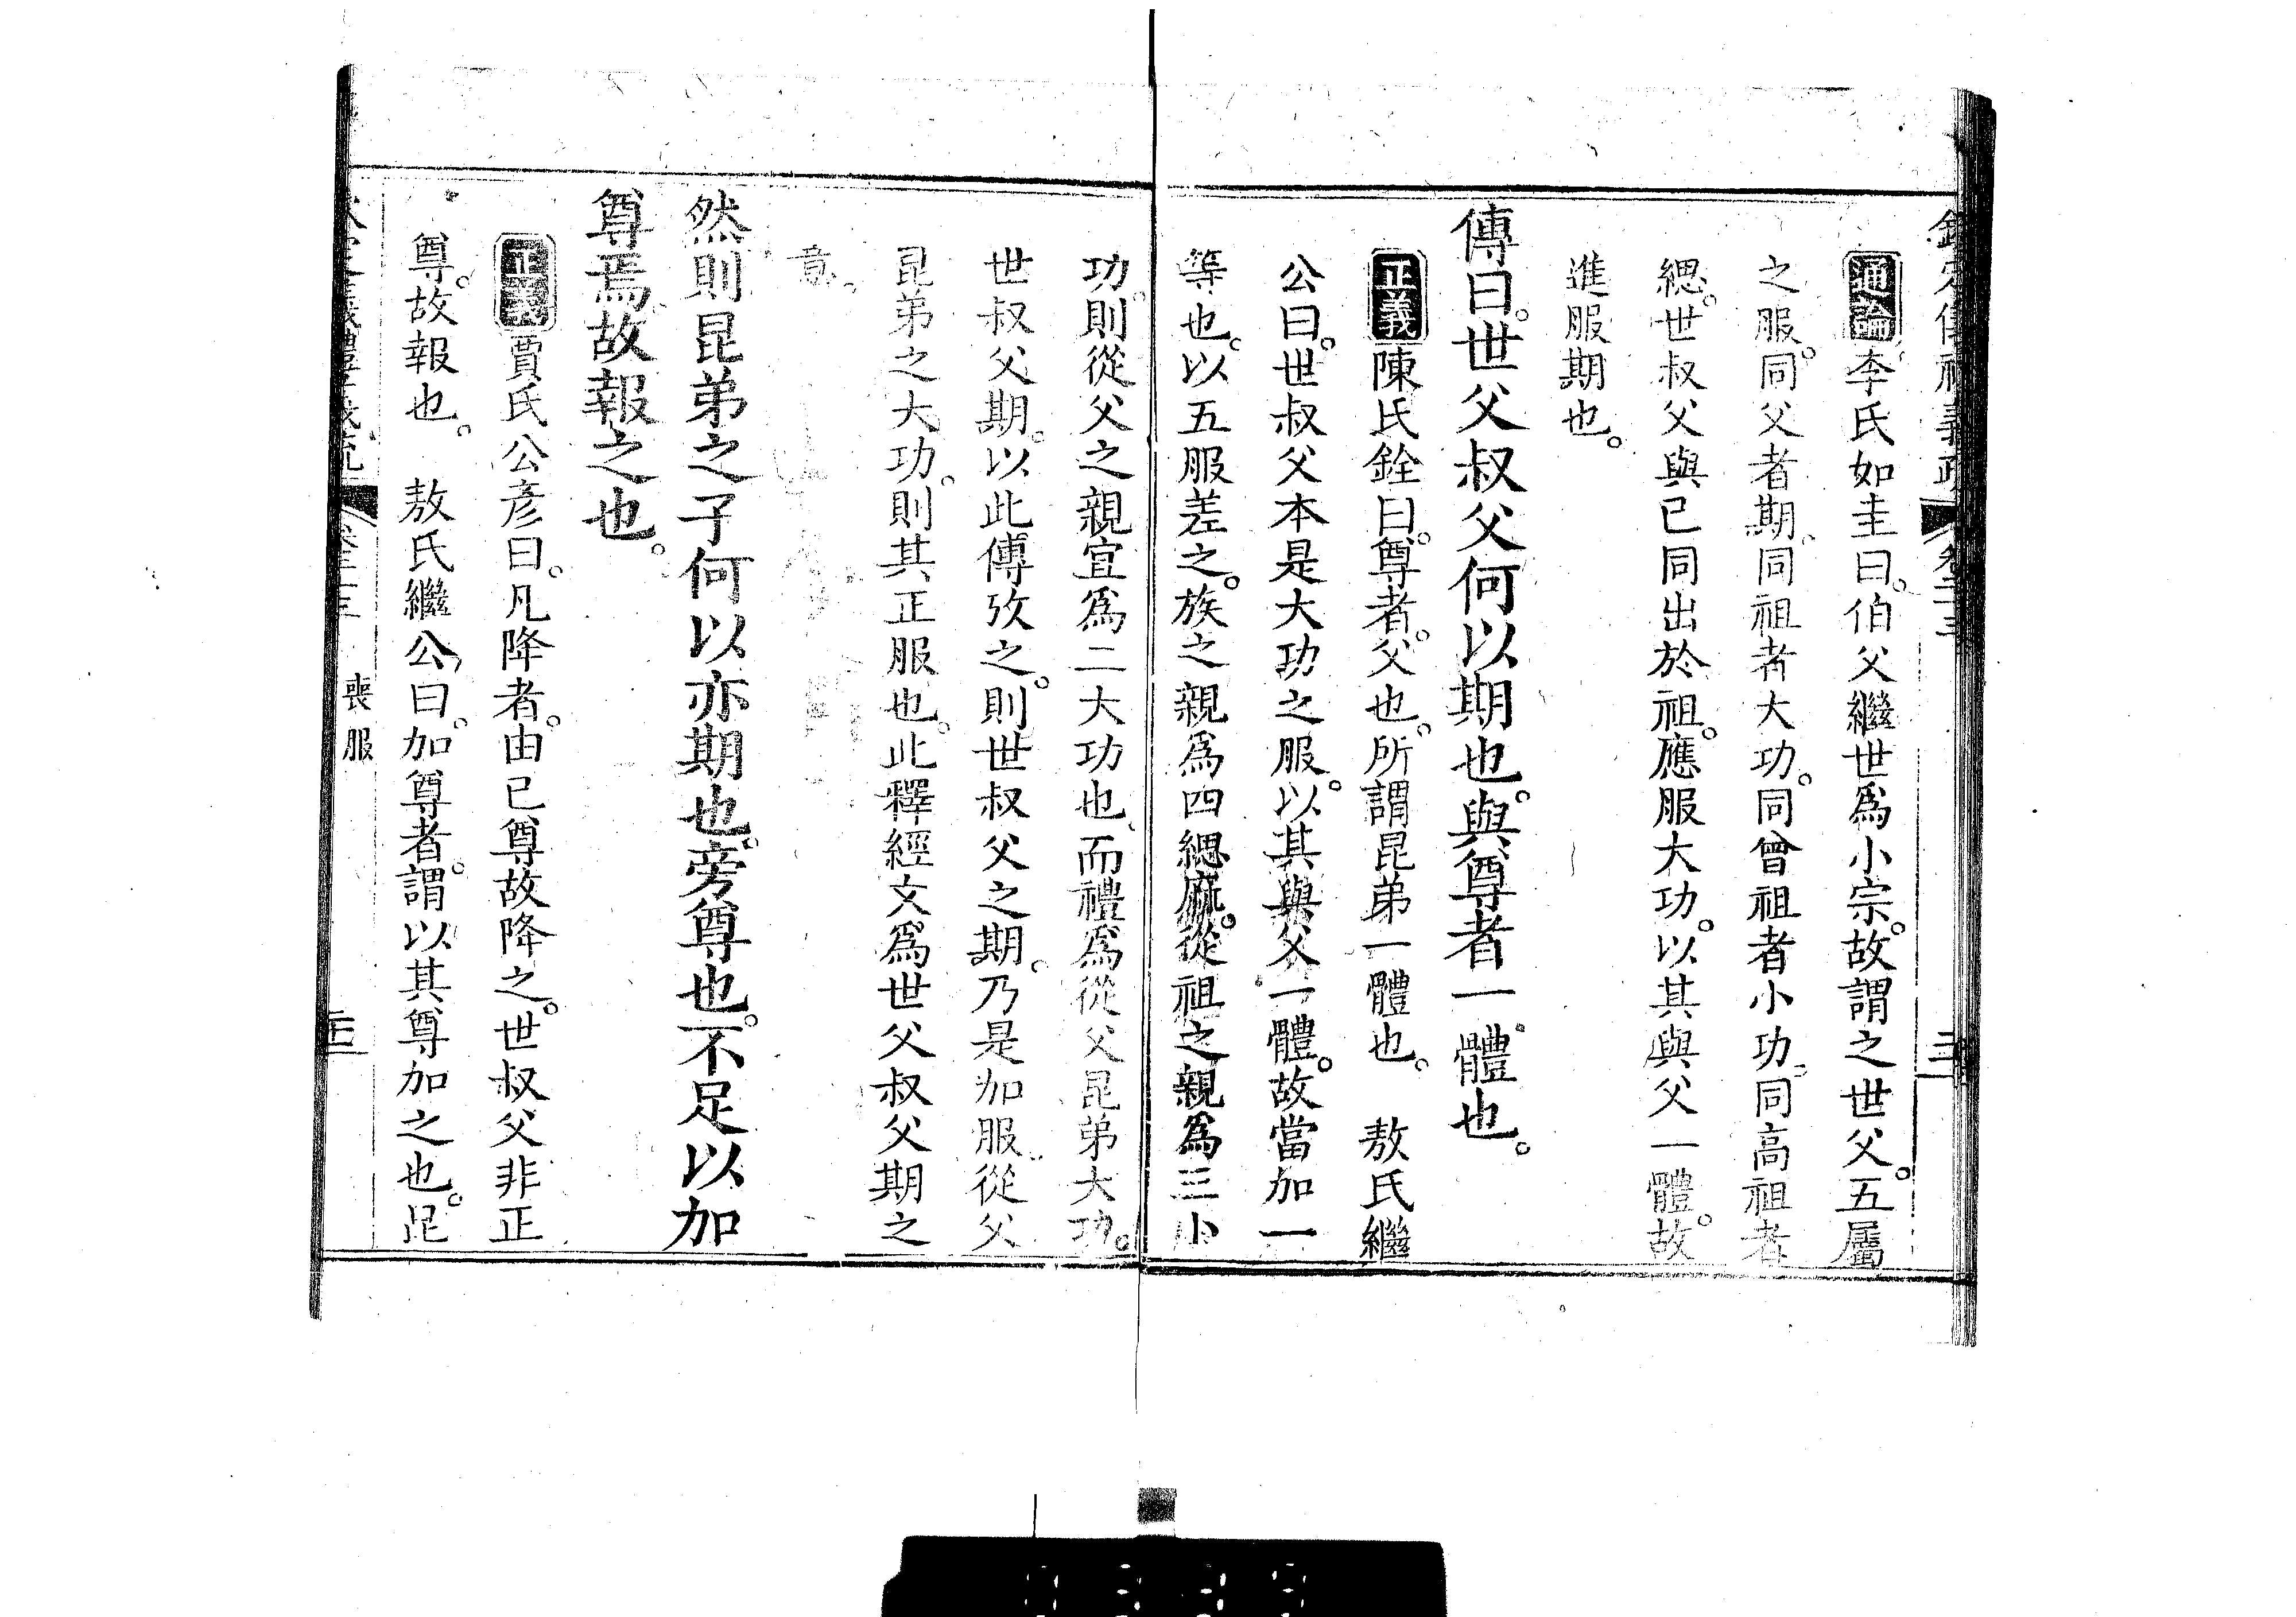 通論李氏如圭曰。伯父繼世爲小宗。故謂之世父。五屬
之服。同父者期。同祖者大功。同曾祖者小功。同高祖者
緦。世叔父與已同出於祖。應服大功。以其與父一體。故
進服期也。
傳曰。世父叔父何以期也。與尊者一體也。
正義陳氏銓曰。尊者。父也。所謂昆弟一體也。　敖氏繼
公曰。世叔父本是大功之服。以其與父一體。故當加一
等也。以五服差之。族之親爲四緦麻。從祖之親爲三小
功。則從父之親宜爲二大功也。而禮爲從父昆弟大功。
世叔父期。以此傳攷之。則世叔父之期。乃是加服。從父
昆弟之大功。則其正服也。此釋經文爲世父叔父期之
意。
然則昆弟之子何以亦期也。旁尊也。不足以加
尊焉。故報之也。
正義賈氏公彦曰。凡降者。由已尊故降之。世叔父非正
尊。故報也。　敖氏繼公曰。加尊者。謂以其尊加之也。昆
喪服